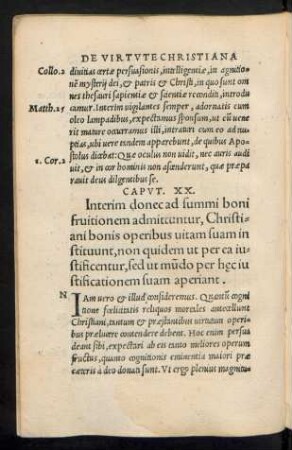 DE VIRTVTE CHRISTIANA
Collo.2 diuitias certæ persuasionis, intelligentiæ, in agnitio
nē mysterij dei, & patris & Christi, in quo sunt om
nes thesauri sapientiæ & scientiæ reconditi, introdu
Matth.25 camur. Interim vigilantes semper, adornatis cum
oleo lampadibus, expectamus sponsum, ut cū uene
rit mature occurramus illi, intraturi cum eo ad nu
ptias, ubi uere tandem apparebunt, de quibus Apo
1. Cor.2 stolus dicebat: Quæ oculus non uidit, nec auris audi
uit, & in cor hominis non ascenderunt, quæ præpa
rauit deus diligentibus se.
CAPVT. XX.
Interim donec ad summi boni
fruitionem admittuntur, Christi/
ani bonis operibus vitam suam in
stituunt, non quidem ut per ea iu/
stificentur, sed ut mūdo per hęc iu
stificationem suam aperiant.
N IAm uero & illud consideremus. Quantū cogni
tione fœlicitatis reliquos mortales antecellunt
Christiani, tantum & præstantibus uirtutum operi
bus prælucere contendere debent. Hoc enim persua
deant sibi, expectari ab eis tanto meliores operum
fructus, quanto cognitionis eminentia maiori præ
cæteris à deo donati sunt. Vt ergo plenius magnitu-